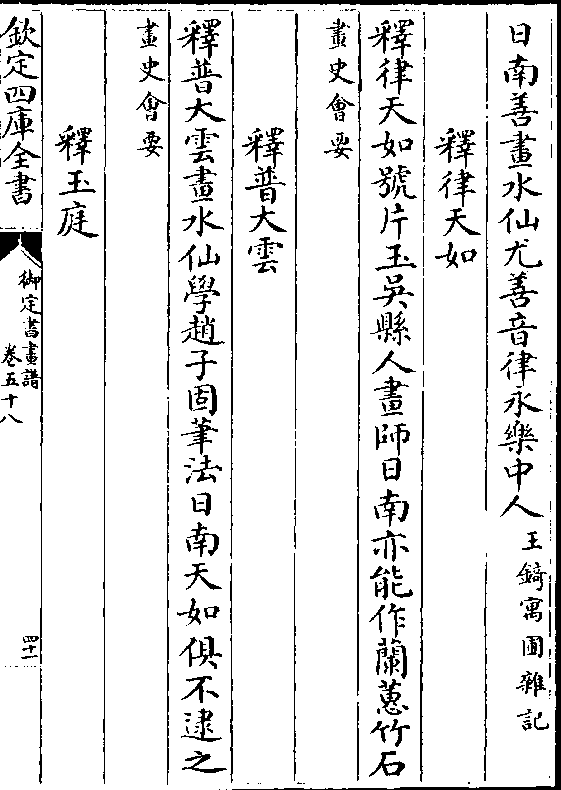 日南善畫水仙尤善音律永樂中人王錡寓圃雜記
釋律天如
釋律天如號片玉吳縣人畫師日南亦能作蘭蕙竹石
畫史會要
釋普大雲
釋普大雲畫水仙學趙子固筆法日南天如俱不逮之
畫史會要
釋玉庭
欽定四庫全書
御定書畫譜
卷五十八
四十一